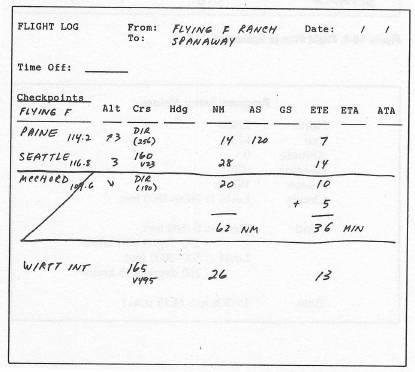 FLIGHT LOG From: FLYING F RANCH Date: / /
To: SPANAWAY
Time Off:
Checkpoints Alt Crs Hdg NM AS GS ETE ETA ATA
FLYING F
PAINE 114.2 ↗3 DIR (256) 14 120 7
SEATTLE 116.8 3 160 V23 28 14
MCCHORD 109.6 ↘ DIR (190) 20 10
+ 5
62 NM 36 MIN
WIRTT INT 165 V495 26 13